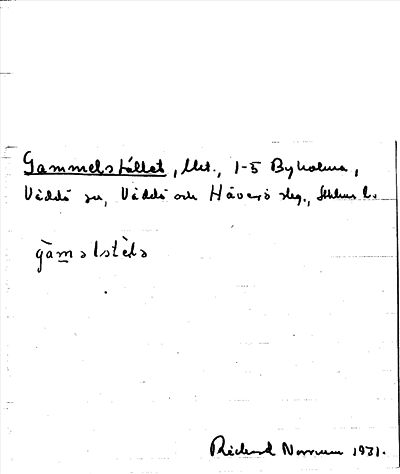 Gammelstället, Mst., 1-5 Byholma,
Väddö sn, Väddö och Häverö slg., Sthlms l.
gàmalstɛ̀lə
Richard Norrman 1931.